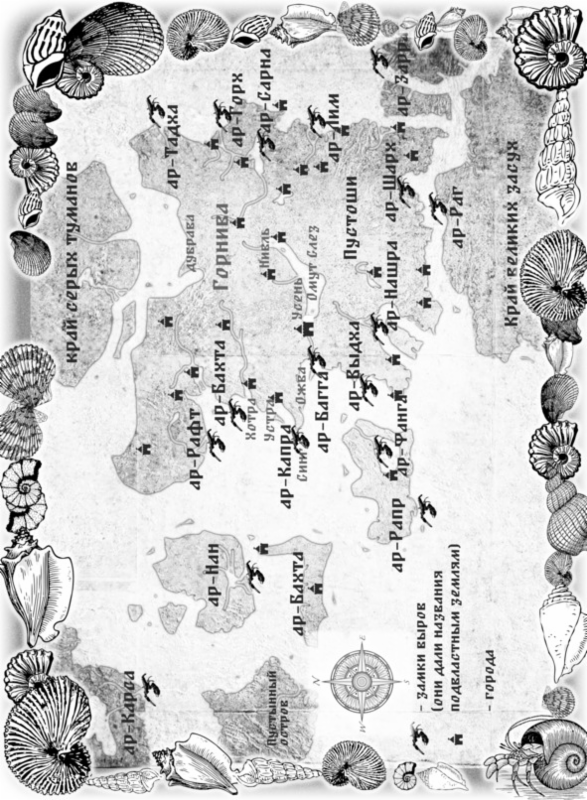 край серых туманов
ар-Карса
ар-Тадха
дубрава
ар-Рафт
ар-Нан
Горнива
ар-Горх
ар-Бахта
Хотра
ар-Сарна
Нивль
Устра
ар-Капра
Усень
Омут Слез
Ожва
ар-Багта
ар-Бахта
Пустынный
остров
ар-Лим
Пустоши
ар-Выдха
ар-Шарх
ар-Нашра
ар-Фанга
ар-Рапр
ар-Зарр
ар-Раг
Край великих засух
N
- замки выров
(они дали названия
подвластным землям)
- города